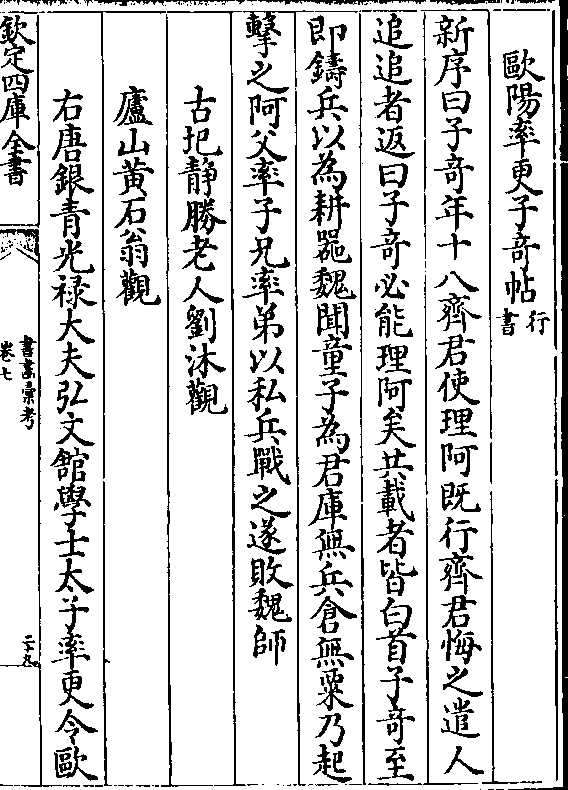 歐陽率更子奇帖行書
新序曰子奇年十八齊君使理阿既行齊君悔之遣人
追追者返曰子奇必能理阿矣共載者皆白首子奇至
即鑄兵以為耕器魏聞童子為君庫無兵倉無粟乃起
擊之阿父率子兄率弟以私兵戰之遂敗魏師
古圯静勝老人劉沐觀
廬山黄石翁觀
右唐銀青光禄大夫弘文館學士太子率更令歐
欽定四庫全書
書畫彙考
卷七
二十九